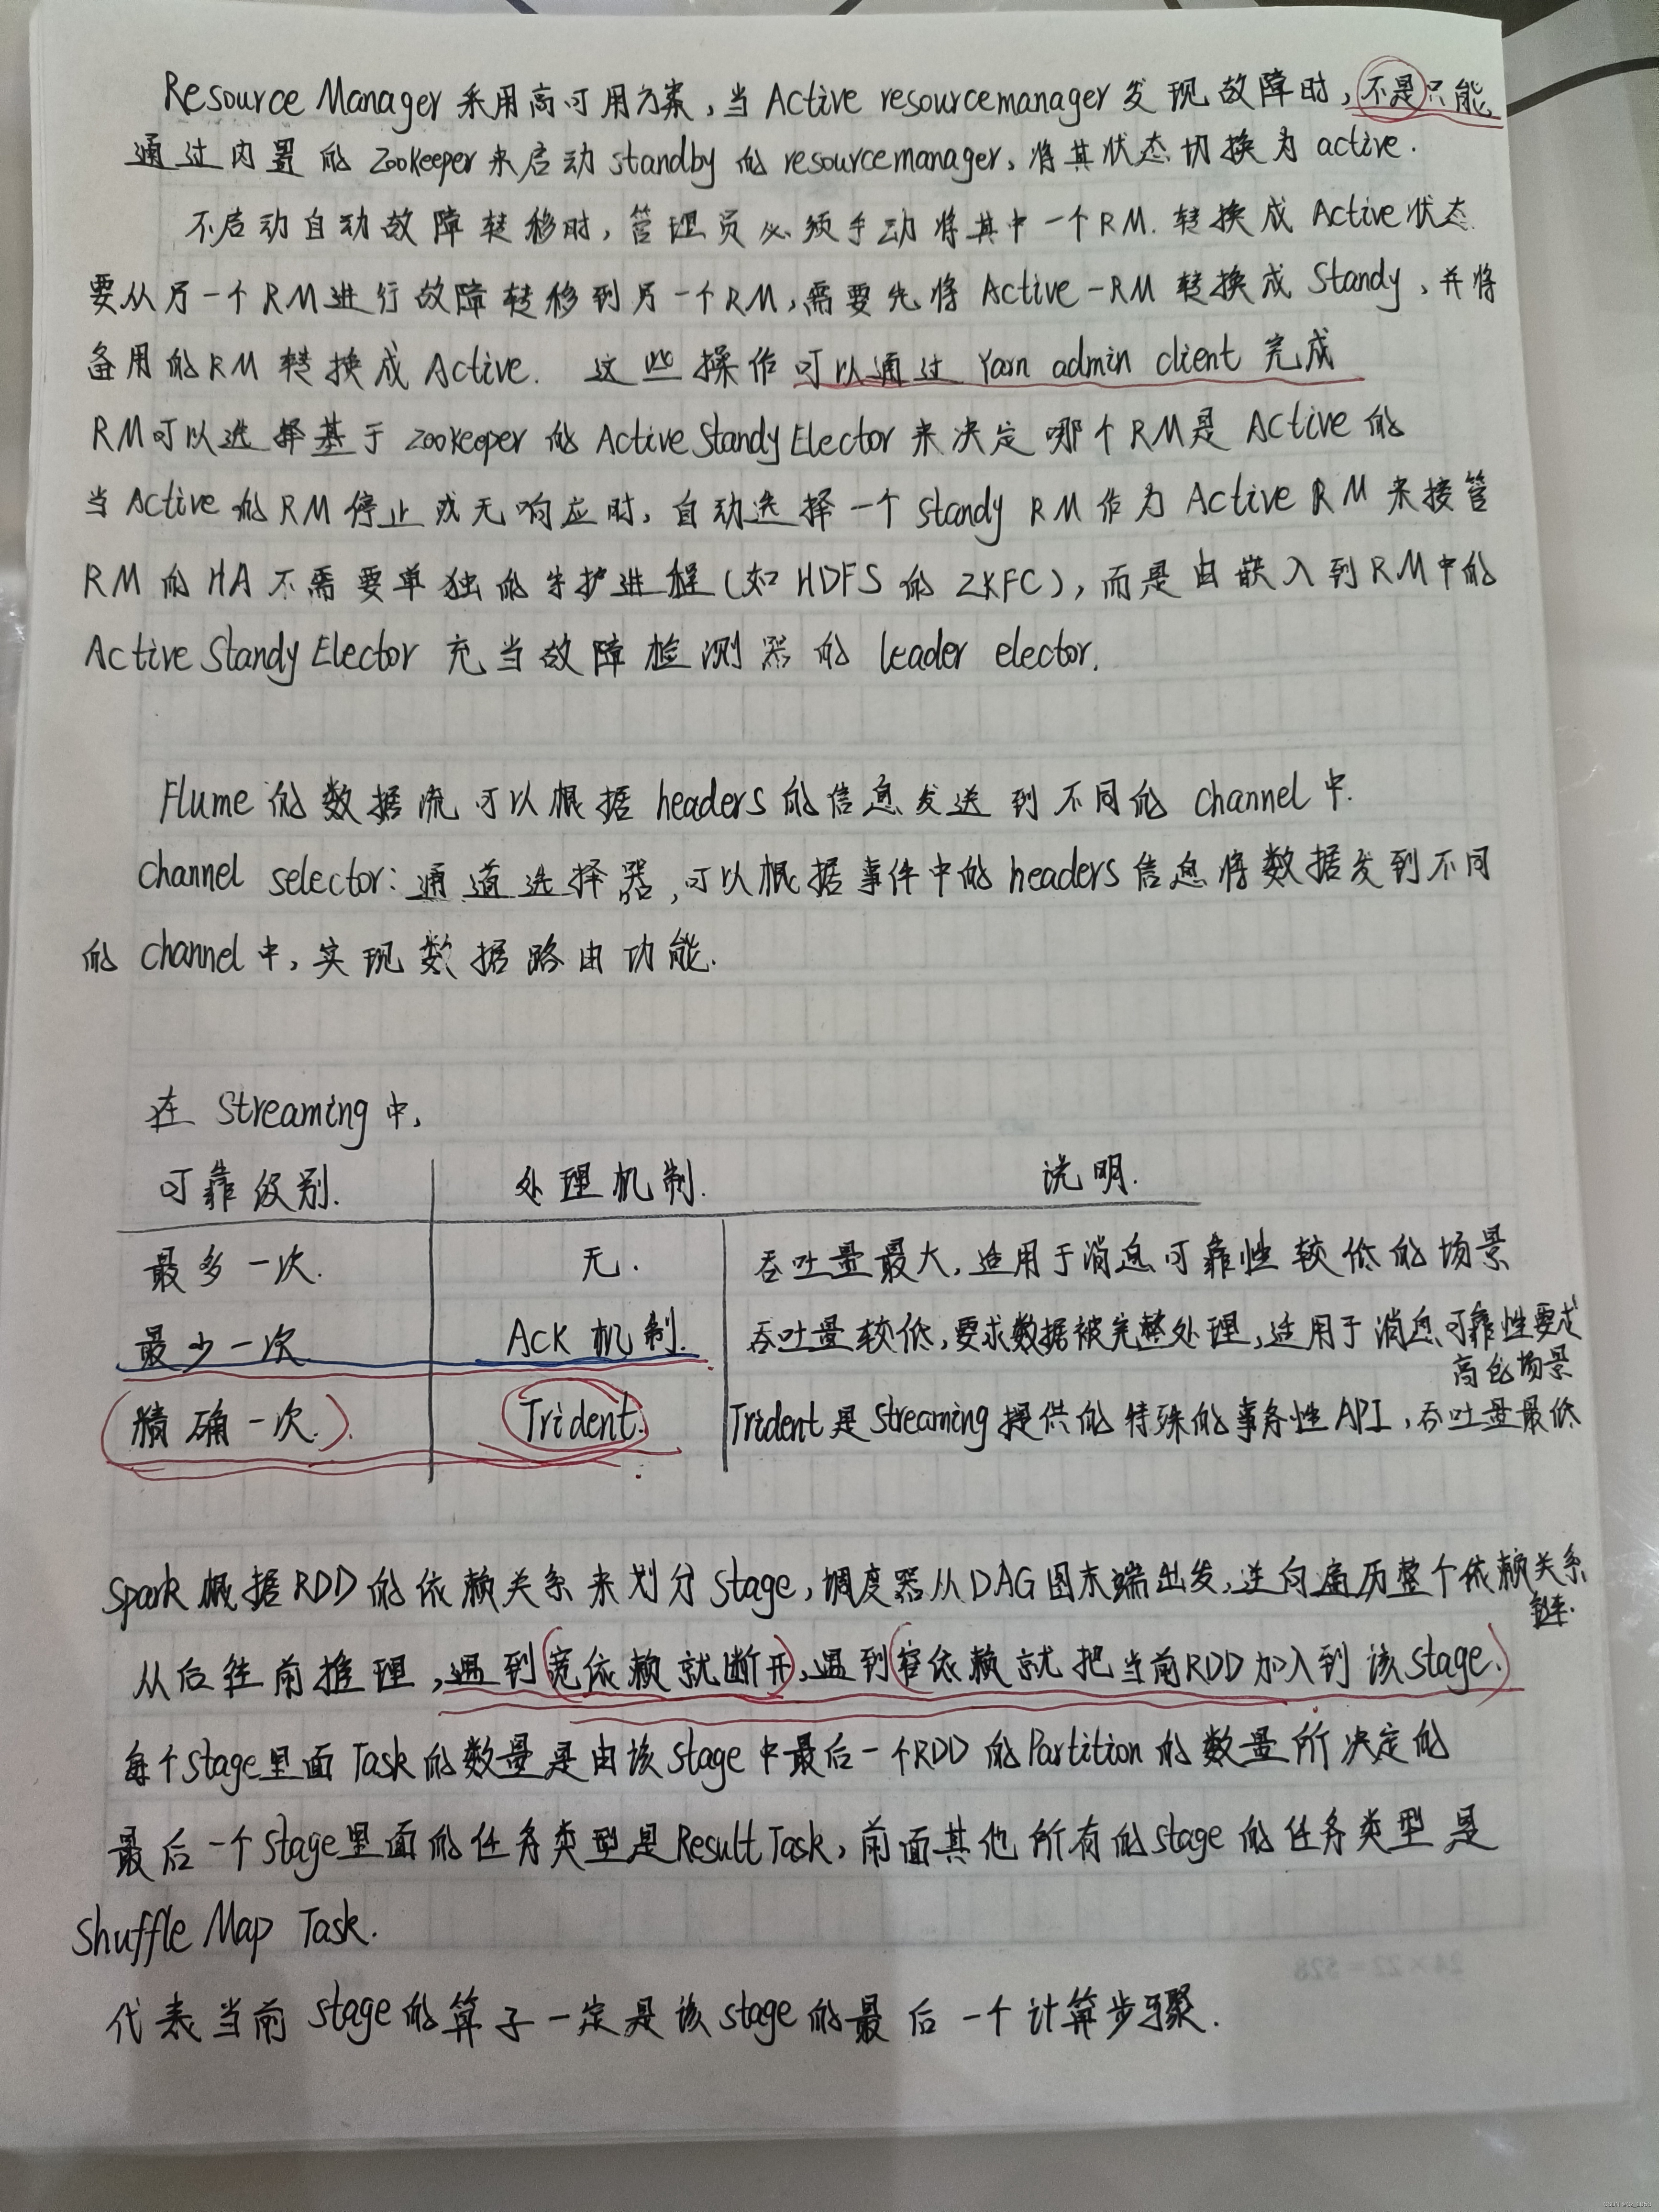 Resource Manager 采用高可用方案，当 Active resourcemanager 发现故障时，不是只能
通过内置的 Zookeeper 来启动 standby 的 resourcemanager，将其状态切换为 active.
不启动自动故障转移时，管理员必须手动将其中一个RM.转换成 Active状态
要从另一个RM进行故障转移到另一个RM，需要先将 Active-RM 转换成 Standy，并将
备用的RM 转换成 Active. 这些操作可以通过 Yarn admin client 完成
RM可以选择基于 zookeeper 的 Active Standy Elector 来决定哪个RM是 Active 的
当 Active 的 RM 停止或无响应时，自动选择一个 Standy RM 作为 Active RM 来接管
RM 的 HA 不需要单独的守护进程（如 HDFS 的 ZKFC），而是由嵌入到RM中的
Active Standy Elector 充当故障检测器的 leader elector.
Flume 的数据流可以根据 headers 的信息发送到不同的 channel 中.
channel selector：通道选择器，可以根据事件中的 headers 信息将数据发到不同
的 channel 中，实现数据路由功能.
在 Streaming 中，
可靠级别. 处理机制. 说明.
最多一次. 无. 吞吐量最大，适用于消息可靠性较低的场景
最少一次 ACK 机制. 吞吐量较低，要求数据被完整处理，适用于消息可靠性要求
高的场景
（精确一次.） Trident. Trident是 Streaming 提供的特殊的事务性API，吞吐量最低
Spark 根据RDD的依赖关系来划分 Stage，调度器从DAG图末端出发，逆向遍历整个依赖关系
链.
从后往前推理，遇到（宽依赖就断开），遇到（窄依赖就把当前RDD加入到该Stage.）
每个stage里面 Task 的数量是由该 Stage 中最后一个RDD 的 Partition 的数量所决定的
最后一个 Stage里面的任务类型是Result Task，前面其他所有的stage 的任务类型是
Shuffle Map Task.
24×22=528
代表当前 stage 的算子一定是该 stage 的最后一个计算步骤.